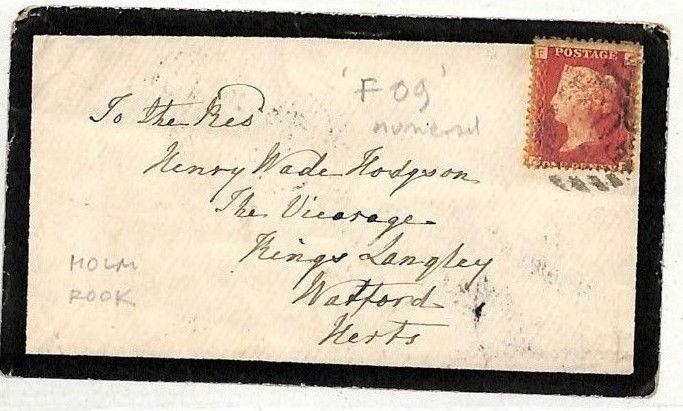 POSTAGE
'F 09'
numeral
To the Rev
Henry Wade Hodgson
The Vicarage
Kings Langley
Watford
Herts
HOLM
ROOK